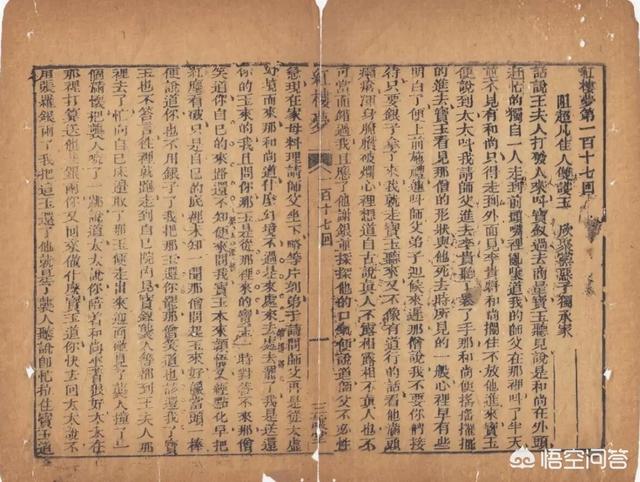 紅樓夢第一百十七回
阻超凡佳人雙護玉　欣聚黨惡子獨承家
話說王夫人打發人來叫寶釵過去商量寶玉聽見說是和尚在外頭
趕忙的獨自一人走到前頭嘴裡亂嚷道我的師父在那裡叫了半天
並不見有和尚只得走到外面見李貴將和尚攔住不放他進來寶玉
便說道太太叫我請師父進去李貴聽了鬆了手那和尚便搖搖擺擺
的進去寶玉看見那僧的形狀與他死去時所見的一般心裡早有些
明白了便上前施禮連叫師父弟子迎候來遲那僧說我不要你們接
待只要銀子拿了來我就走寶玉聽來又不像有道行的話看他滿頭
癩瘡渾身腌臢破爛心裡想道自古說真人不露相露相不真人也不
可當面錯過我且應了他謝銀並探探他的口氣便說道師父不必性
紅樓夢　第一百十七回　一
急現在家母料理請師父坐下略等片刻弟子請問師父可是從太虛
幻境而來那和尚道什麼幻境不過是來處來去處去罷了我是送還
你的玉來的我且問你那玉是從那裡來的寶玉一時對答不來那僧
笑道你自己的來路還不知便來問我寶玉本來穎悟又經點化早把
紅塵看破只是自己的底裡未知一聞那僧問起玉來好像當頭一棒
便說道你也不用銀子了我把那玉還你罷那僧笑道也該還我了寶
玉也不答言往裡就跑走到自己院內見寶釵襲人等都到王夫人那
裡去了忙向自己床邊取了那玉便走出來迎面碰見了襲人撞了一
個滿懷把襲人唬了一跳說道太太說你陪着和尚坐着很好太太在
那裡打算送他些銀兩你又回來做什麼寶玉道你快去回太太說不
用張羅銀兩了我把這玉還了他就是了襲人聽說即忙拉住寶玉道
悟空问答